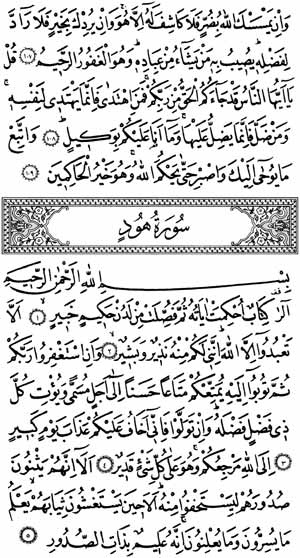 وَاِنْ يَمْسَسْكَ اللّٰهُ بِضُرٍّ فَلَا كَاشِفَ لَهُٓ اِلَّا هُوَ وَاِنْ يُرِدْكَ بِخَيْرٍ فَلَا رَٓادَّ
لِفَضْلِه۪ يُص۪يبُ بِه۪ مَنْ يَشَٓاءُ مِنْ عِبَادِه۪ وَهُوَ الْغَفُورُ الرَّح۪يمُ ﴿١٠٧﴾ قُلْ
يَٓا اَيُّهَا النَّاسُ قَدْ جَٓاءَكُمُ الْحَقُّ مِنْ رَبِّكُمْ فَمَنِ اهْتَدٰى فَاِنَّمَا يَهْتَد۪ي لِنَفْسِه۪
وَمَنْ ضَلَّ فَاِنَّمَا يَضِلُّ عَلَيْهَا وَمَٓا اَنَا۬ عَلَيْكُمْ بِوَك۪يلٍ ﴿١٠٨﴾ وَاتَّبِعْ
مَا يُوحٰٓى اِلَيْكَ وَاصْبِرْ حَتّٰى يَحْكُمَ اللّٰهُ وَهُوَ خَيْرُ الْحَاكِم۪ينَ ﴿١٠٩﴾
سُورَةُ هُودٍ
بِسْمِ اللّٰهِ الرَّحْمٰنِ الرَّح۪يمِ
الٓرٰ كِتَابٌ اُحْكِمَتْ اٰيَاتُهُ ثُمَّ فُصِّلَتْ مِنْ لَدُنْ حَك۪يمٍ خَب۪يرٍ ﴿١﴾ اَلَّا
تَعْبُدُٓوا اِلَّا اللّٰهَ اِنَّن۪ي لَكُمْ مِنْهُ نَذ۪يرٌ وَبَش۪يرٌ ﴿٢﴾ وَاَنِ اسْتَغْفِرُوا رَبَّكُمْ
ثُمَّ تُوبُٓوا اِلَيْهِ يُمَتِّعْكُمْ مَتَاعًا حَسَنًا اِلٰٓى اَجَلٍ مُسَمًّى وَيُؤْتِ كُلَّ
ذ۪ي فَضْلٍ فَضْلَهُ وَاِنْ تَوَلَّوْا فَاِنّ۪ٓي اَخَافُ عَلَيْكُمْ عَذَابَ يَوْمٍ كَب۪يرٍ
﴿٣﴾ اِلَى اللّٰهِ مَرْجِعُكُمْ وَهُوَ عَلٰى كُلِّ شَيْءٍ قَد۪يرٌ ﴿٤﴾ اَلَٓا اِنَّهُمْ يَثْنُونَ
صُدُورَهُمْ لِيَسْتَخْفُوا مِنْهُ اَلَا ح۪ينَ يَسْتَغْشُونَ ثِيَابَهُمْ يَعْلَمُ
مَا يُسِرُّونَ وَمَا يُعْلِنُونَ اِنَّهُ عَل۪يمٌ بِذَاتِ الصُّدُورِ ﴿٥﴾